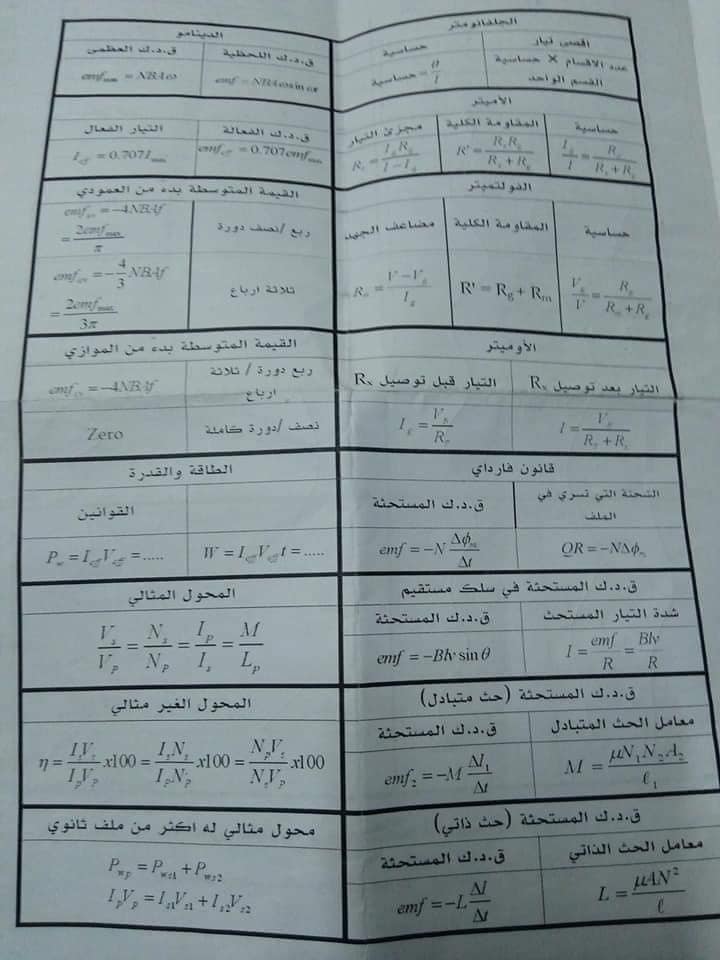 الجلفانومتر
أقصى تيار
حساسية
عدد الاقسام × حساسية القسم الواحد
حساسية = θ/I
الأميتر
حساسية
المقاومة الكلية
مجزئ التيار
I_g/I = R_s/(R_s + R_g)
R' = R_s R_g/(R_s + R_g)
R_s = I_g R_g/(I − I_g)
الفولتميتر
حساسية
المقاومة الكلية
مضاعف الجهد
V_g/V = R_g/(R_m + R_g)
R' = R_g + R_m
R_m = (V − V_g)/I_g
الأوميتر
التيار بعد توصيل R_x
التيار قبل توصيل R_x
I = V_B/(R_o + R_x)
I_g = V_B/R_o
قانون فارداي
الشحنة التي تسري في الملف
ق.د.ك المستحثة
QR = −NΔϕ_m
emf = −N Δϕ_m/Δt
ق.د.ك المستحثة في سلك مستقيم
شدة التيار المستحث
ق.د.ك المستحثة
I = emf/R = Blv/R
emf = −Blv sin θ
ق.د.ك المستحثة (حث متبادل)
معامل الحث المتبادل
ق.د.ك المستحثة
M = μN_1 N_2 A_2/ℓ_1
emf_2 = −M ΔI_1/Δt
ق.د.ك المستحثة (حث ذاتي)
معامل الحث الذاتي
ق.د.ك المستحثة
L = μAN²/ℓ
emf = −L ΔI/Δt
الدينامو
ق.د.ك اللحظية
ق.د.ك العظمى
emf = NBAω sin ωt
emf_max = NBAω
ق.د.ك الفعالة
التيار الفعال
emf_eff = 0.707 emf_max
I_eff = 0.707 I_max
القيمة المتوسطة بدء من العمودي
ربع / نصف دورة
emf_av = −4NBAf
= 2emf_max/π
ثلاثة ارباع
emf_av = −4/3 NBAf
= 2emf_max/3π
القيمة المتوسطة بدء من الموازي
ربع دورة / ثلاثة ارباع
emf_av = −4NBAf
نصف / دورة كاملة
Zero
الطاقة والقدرة
القوانين
W = I_eff V_eff t = .....
P_w = I_eff V_eff = .....
المحول المثالي
V_s/V_p = N_s/N_p = I_p/I_s = M/L_p
المحول الغير مثالي
η = I_s V_s/I_p V_p x100 = I_s N_s/I_p N_p x100 = N_p V_s/N_s V_p x100
محول مثالي له اكثر من ملف ثانوي
P_wp = P_ws1 + P_ws2
I_p V_p = I_s1 V_s1 + I_s2 V_s2